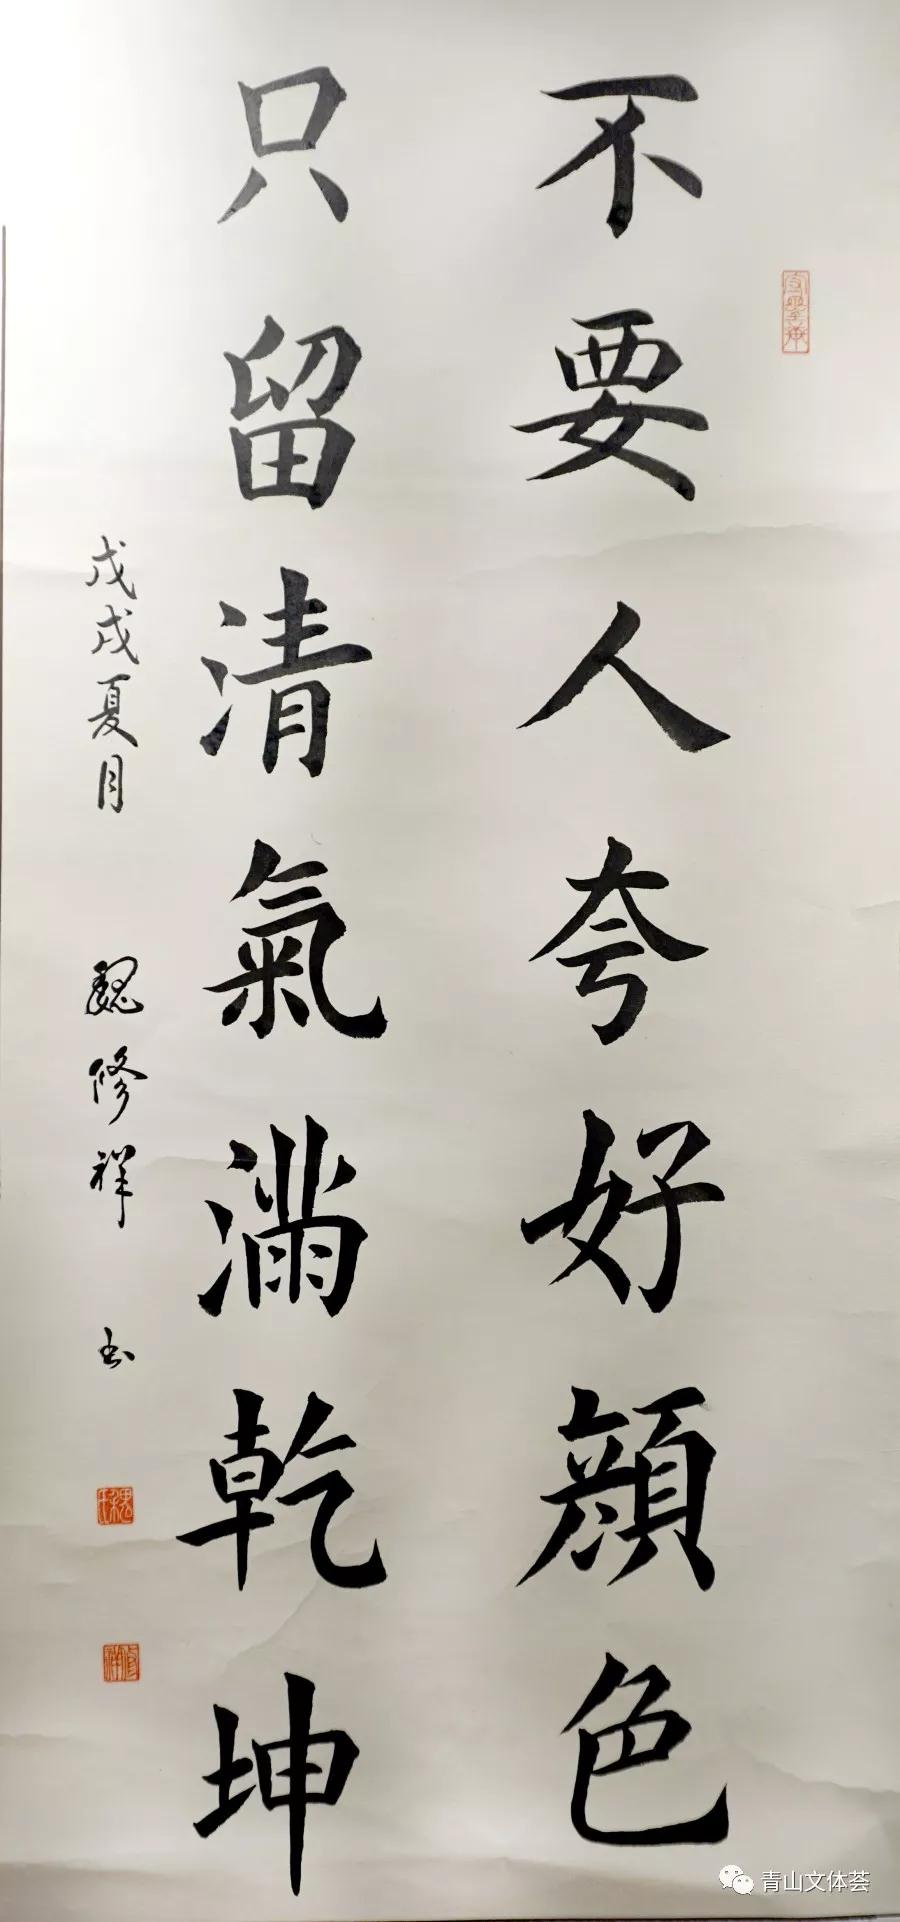 不要人夸好顔色
只留清氣滿乾坤
戊戌夏月 魏修祥书
魏氏
修祥
青山文体荟